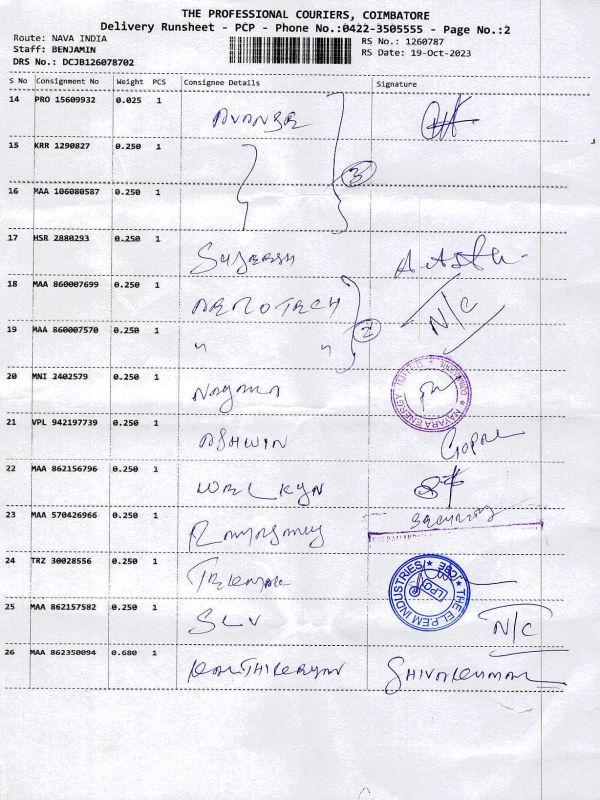 THE PROFESSIONAL COURIERS, COIMBATORE
Delivery Runsheet - PCP - Phone No.:0422-3505555 - Page No.:2
Route: NAVA INDIA
Staff: BENJAMIN
DRS No.: DCJB126078702
RS No.: 1260787
RS Date: 19-Oct-2023
S No Consignment No Weight PCS Consignee Details Signature
14 PRO 15609932 0.025 1
15 KRR 1290827 0.250 1
3
16 MAA 106080587 0.250 1
17 HSR 2880293 0.250 1
18 MAA 860007699 0.250 1 N/C
19 MAA 860007570 0.250 1 " " 2
20 MNI 2402579 0.250 1
NATARA ENERGY
21 VPL 942197739 0.250 1 ASHWIN
22 MAA 862156796 0.250 1
23 MAA 570426966 0.250 1 Security
24 TRZ 30028556 0.250 1
THE EL.P.EM INDUSTRIES CBE LPG
25 MAA 862157582 0.250 1 SLV N/C
26 MAA 862350094 0.680 1 KARTHIKEYAN SHIVAKUMAR